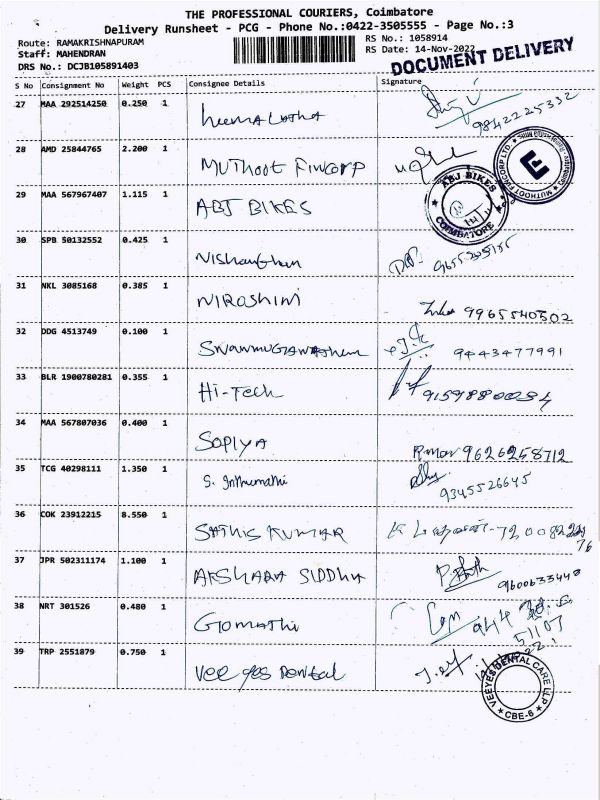 THE PROFESSIONAL COURIERS, Coimbatore
Delivery Runsheet - PCG - Phone No.:0422-3505555 - Page No.:3
Route: RAMAKRISHNAPURAM RS No.: 1058914
Staff: MAHENDRAN RS Date: 14-Nov-2022
DRS No.: DCJB105891403 DOCUMENT DELIVERY
S No Consignment No Weight PCS Consignee Details Signature
27 MAA 292514250 0.250 1 HemaLatha 9842225332
28 AMD 25844765 2.200 1 Muthoot Fincorp
MUTHOOT FINCORP LTD
29 MAA 567967407 1.115 1 ABJ BIKES
ABJ BIKES COIMBATORE
30 SPB 50132552 0.425 1
31 NKL 3085168 0.385 1 NIROSHINI 9965540302
32 DDG 4513749 0.100 1 9443477991
33 BLR 1900780281 0.355 1 Hi-Tech
34 MAA 567807036 0.400 1 SOPIYA 9626258712
35 TCG 40298111 1.350 1 S. Inthumathi 9345526645
36 COK 23912215 8.550 1 SATHIS KUMAR
37 JPR 502311174 1.100 1 AKSHARA SIDDHA 9600633448
38 NRT 301526 0.480 1 Gomathi
39 TRP 2551879 0.750 1 Vee yes Dental
VEEYES DENTAL CARE LLP
CBE-6